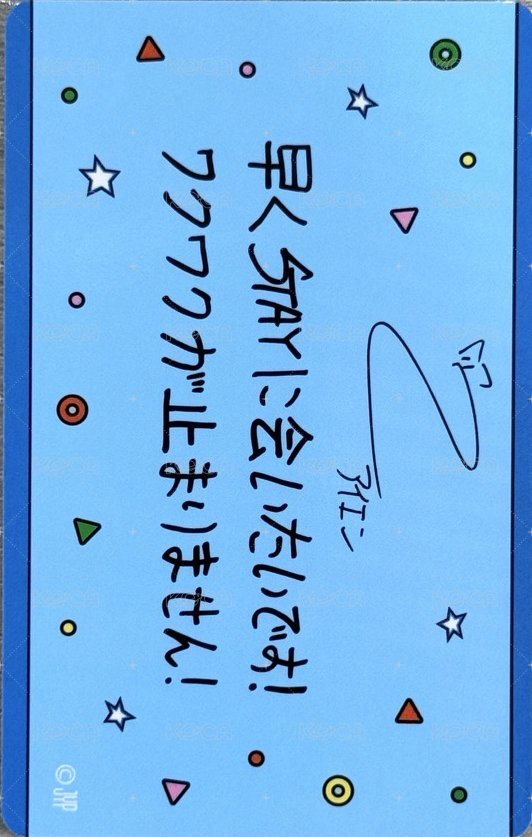 アイエン
早くSTAYに会いたいです!
ワクワクが止まりません!
©JYP